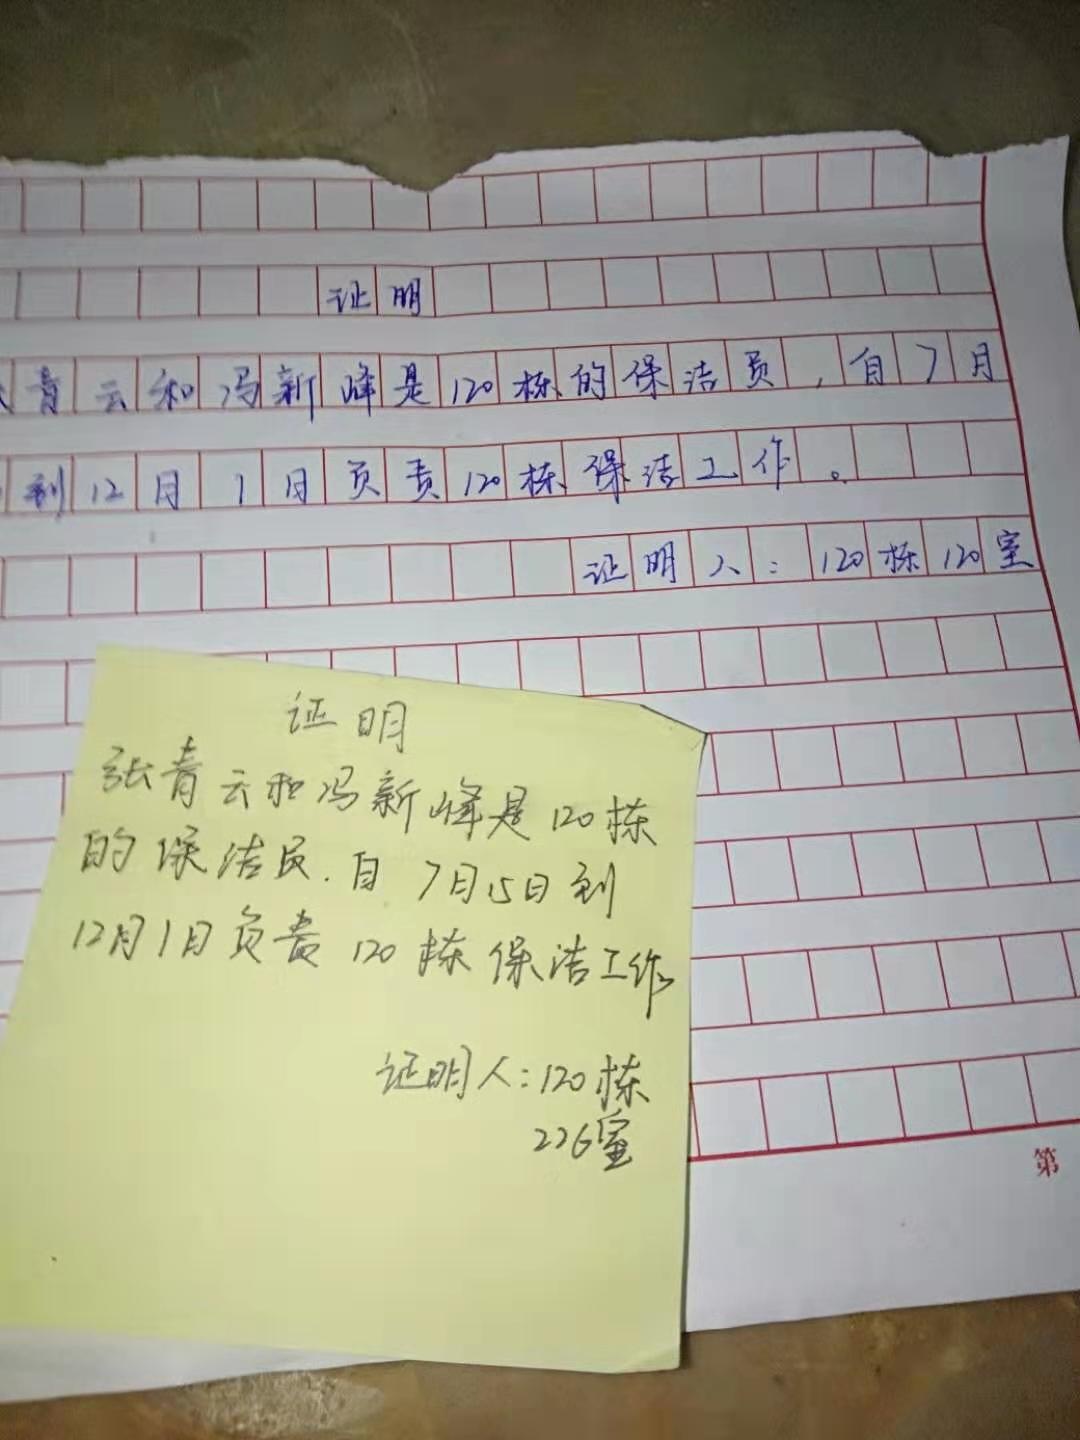 证明
青云和冯新峰是120栋的保洁员，自7月
到12月1日负责120栋保洁工作。
证明人：120栋120室
证明
张青云和冯新峰是120栋
的保洁员.自7月15日到
12月1日负责120栋保洁工作
证明人：120栋
226室
第